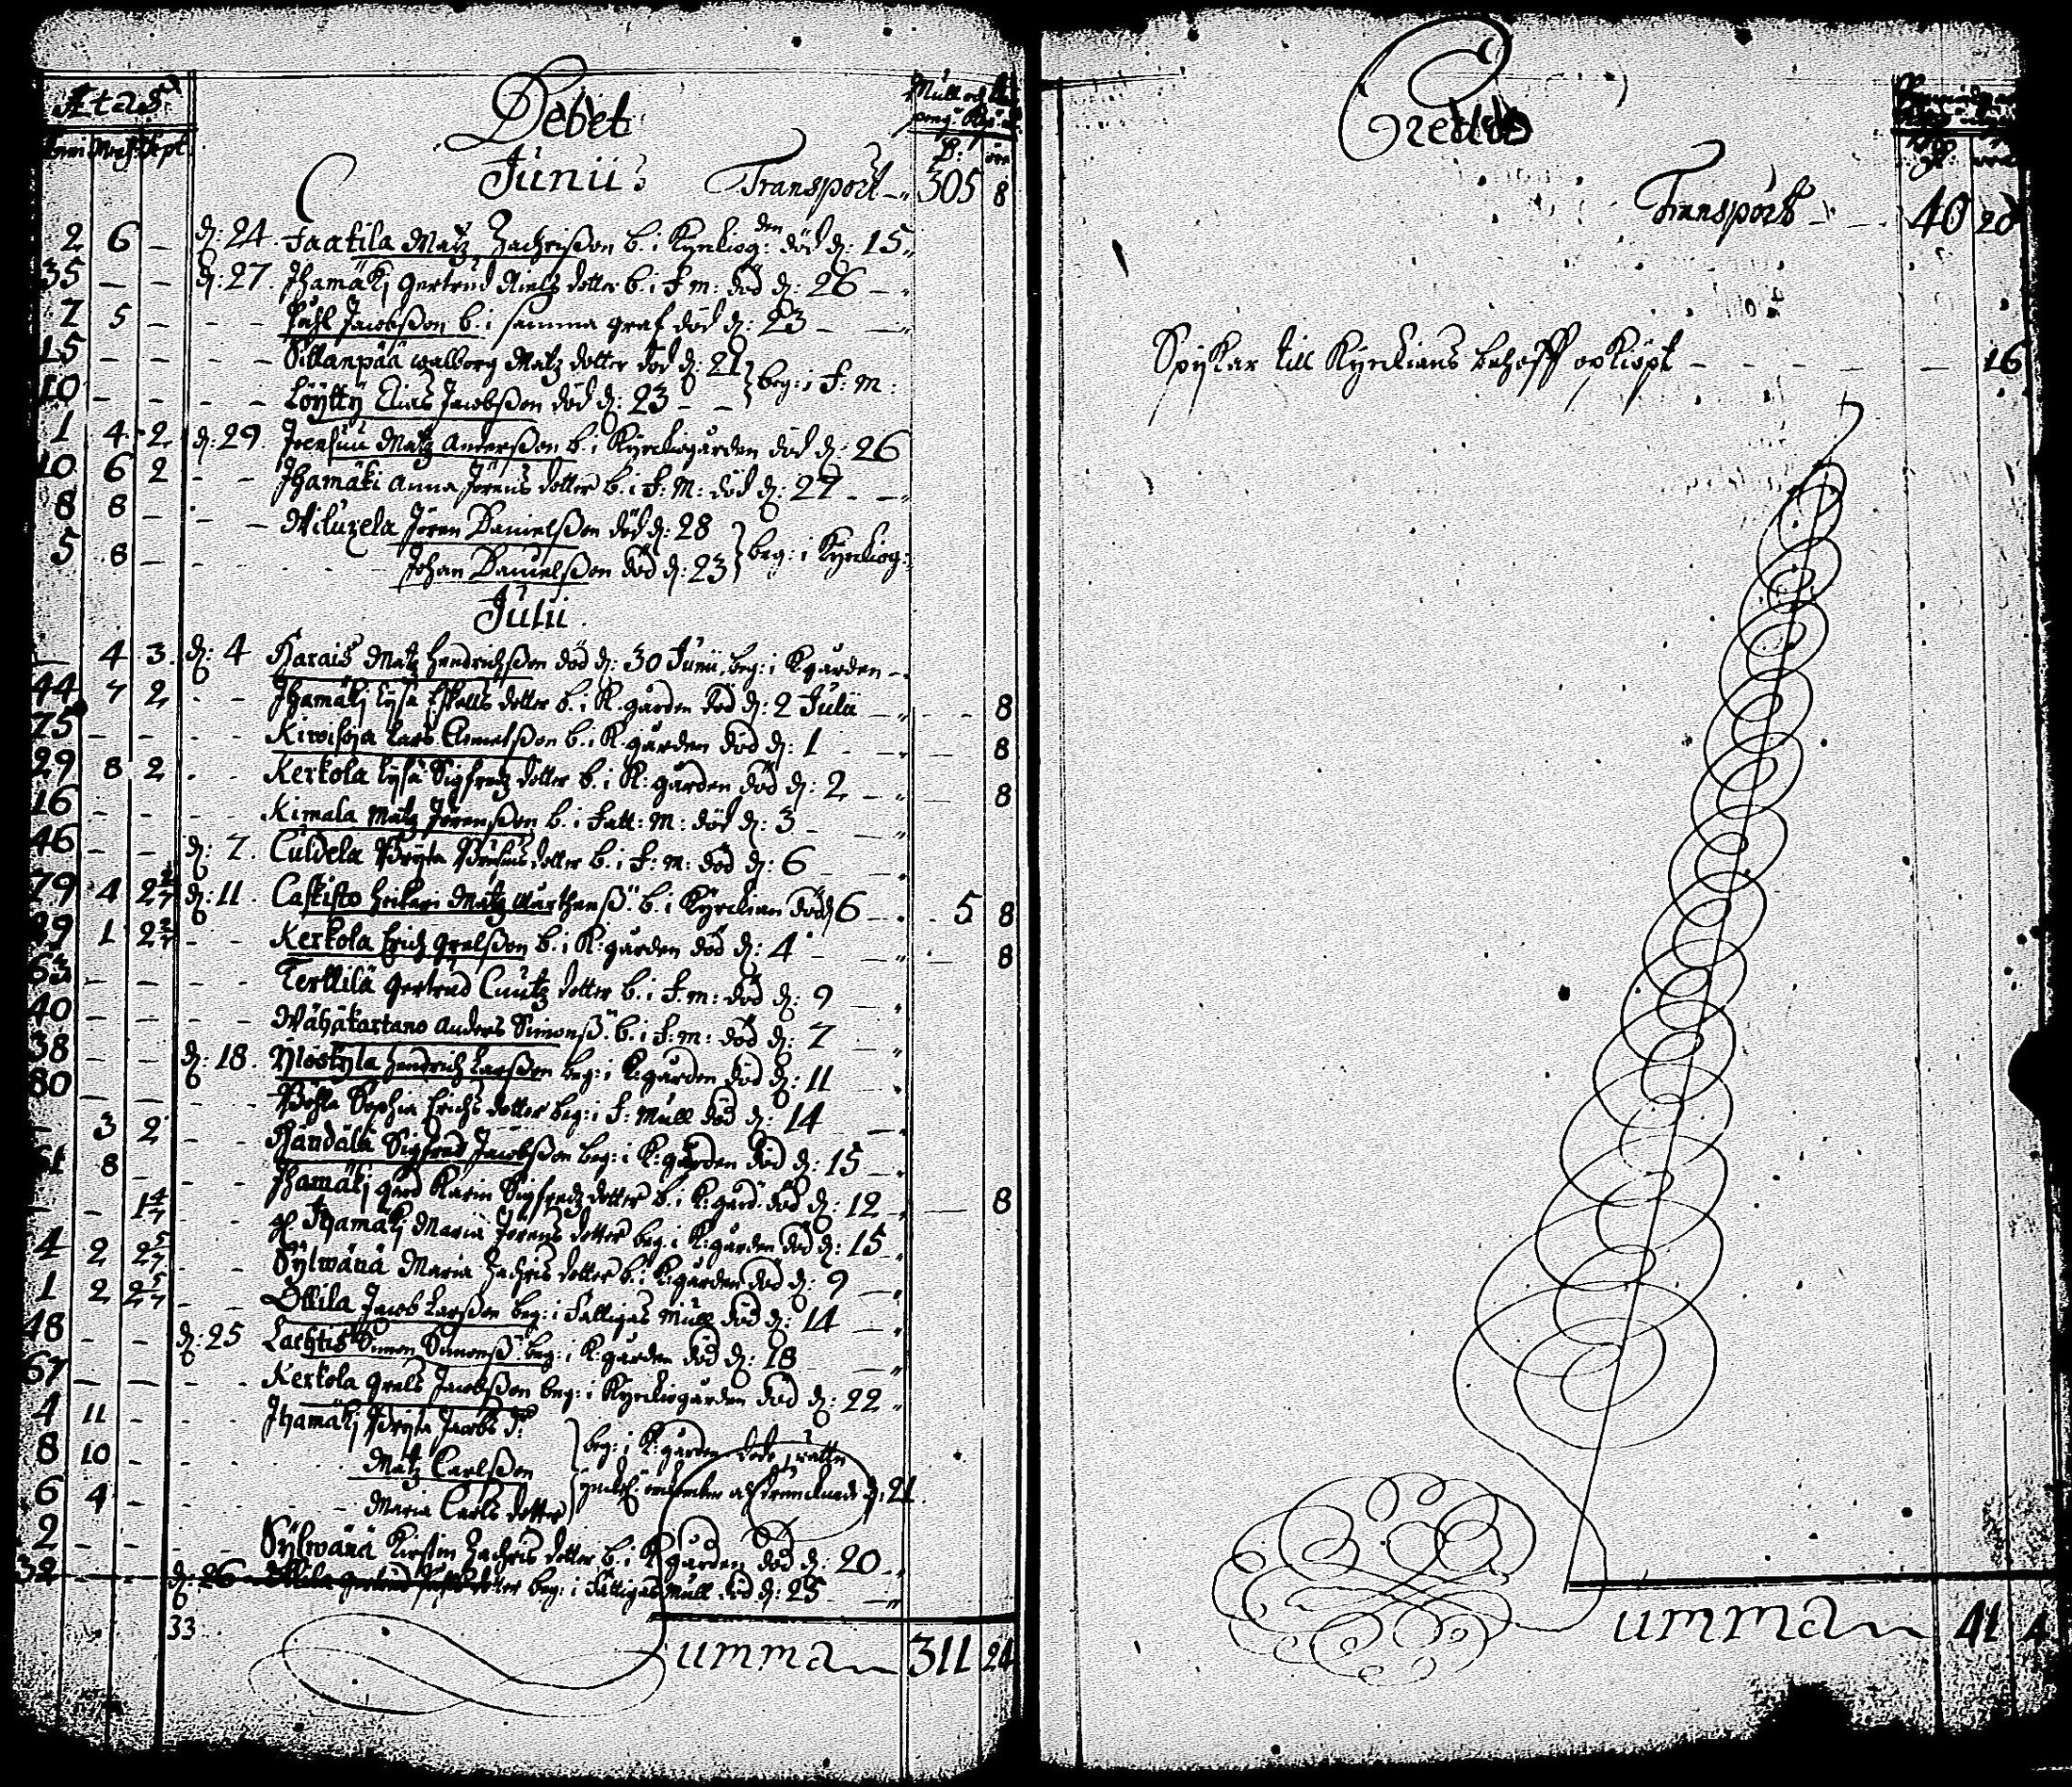 Ætas
Debet
Credit
Junii
Transport 305 8
Transport 40 20
2 6 — d: 24. Matz Zachrisson b. i Kyrkiog:den död d: 15
35 — — d: 27. Ihamäkj Gertrud Nielz dotter b. i F. m: död d: 26
7 5 — Påhl Jacobsson b. i samma graf död d: 23
15 — — Sillanpää Walborg Matz dotter död d: 21 } beg: i F: m:
10 — — Löytty Elias Jacobsson död d: 23
1 4 2 d: 29. Joensuu Matz Andersson b. i Kyrkiogården död d: 26
10 6 2 Ihamäki Anna Jörens dotter b. i F: M: död d: 27
8 8 — Jören Danielsson död d: 28 } beg: i Kyrkiog:
5 8 — Johan Danielsson död d: 23
Julii
— 4 3 d: 4 Matz Hendrichsson död d: 30 Junii beg: i Kgården
44 7 2 Ihamäkj Lysa Eskells dotter b. i K. gården död d: 2 Julii 8
75 — — Kiwisoja Lars b. i K. gården död d: 1 8
29 8 2 Kerkola Lysa Sigfredz dotter b. i K: gården död d: 2 8
16 — — Kimala Matz Jörensson b. i Fatt: M: död d: 3
46 — — d: 7. Culdela Bryta dotter b. i F: m: död d: 6
79 4 d: 11. Caskisto Matz b. i Kyrckian död d 6 5 8
1 Kerkola Erich Grelsson b. i K: gården död d: 4 8
63 — — Terttilä Gertrud Cnutz dotter b. i F. m: död d: 9
40 — — Wähäkartano Anders Simonss: b. i F: m: död d: 7
38 — — d: 18. Yliöstyla Hendrich Larsson beg: i K: gården död d: 11
80 — — Sophia Erichs dotter beg: i F: Mull död d: 14
3 2 Sigfred Jacobsson beg: i K: gården död d: 15
8 Ihamäkj Karin Sigfredz dotter b. i K: gård: död d: 12 8
Ihamäkj Maria Jörens dotter beg. i K: gården död d: 15
4 2 Sylwänä Maria Zachris dotter b. i K: gården död d: 9
1 2 Ollila Jacob Larsson beg: i Fattigas Mull död d: 14
48 — — d: 25 Lachtis Simon Simonss: beg: i K: gården död d: 18
67 — — Kerkola Grels Jacobsson beg: i Kyrkiogården död d: 22
4 11 Ihamäkj Bryta Jacobs d:
8 10 Matz Carlsson } beg: i K: gården
6 4 Maria Carls dotter d. 21
2 Sylwänä Kirstin Zachris dotter b. i K gården död d: 20
d: 26 Gertrud dotter beg: i Fattigas Mull död d: 25
33
Summa 311 24
Spykar till Kyrckians behoff opkiöpt 16
Summa 41